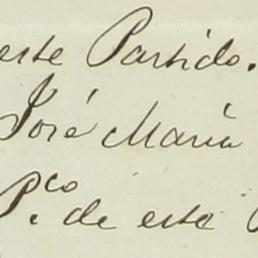 este Partido.
José María
P.co de este